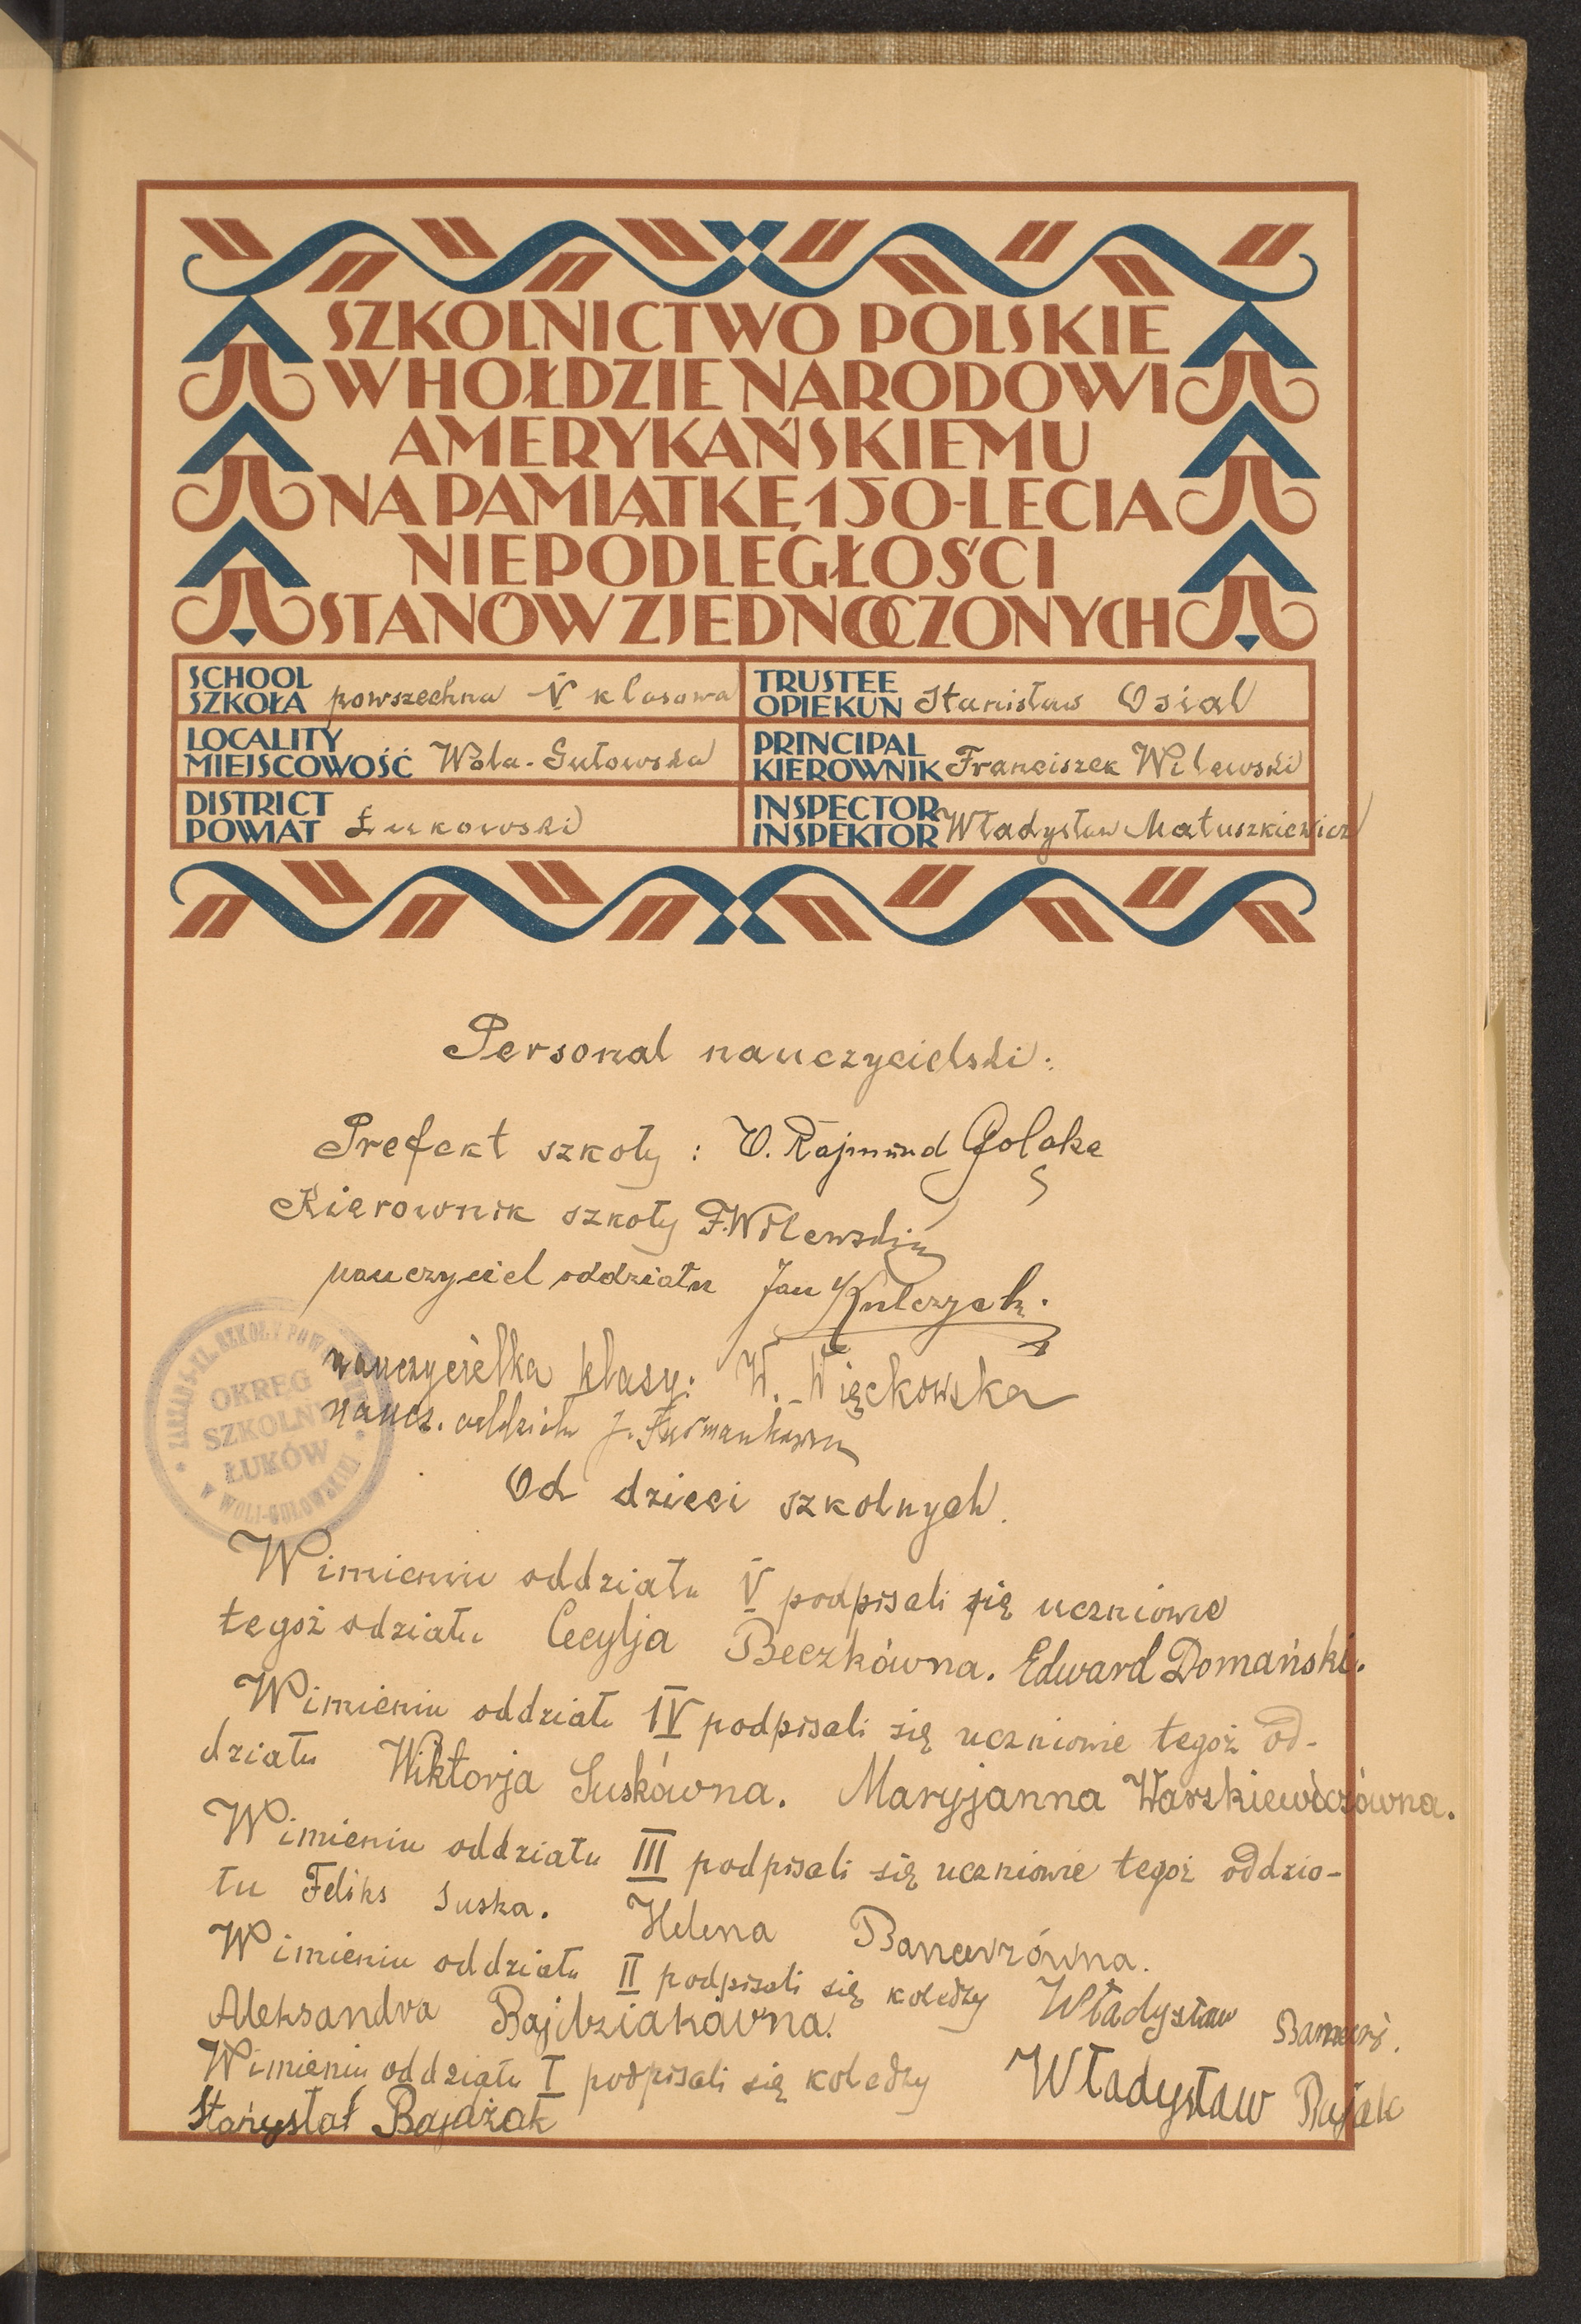 SZKOLNICTWO POLSKIE
W HOŁDZIE NARODOWI
AMERYKAŃSKIEMU
NA PAMIĄTKĘ 150-LECIA
NIEPODLEGŁOŚCI
STANÓW ZJEDNOCZONYCH
SCHOOL
SZKOŁA powszechna V klasowa
TRUSTEE
OPIEKUN Stanisław Osial
LOCALITY
MIEJSCOWOŚĆ Wola-Gułowska
PRINCIPAL
KIEROWNIK Franciszek Wilewski
DISTRICT
POWIAT Łukowski
INSPECTOR
INSPEKTOR Władysław Matuszkiewicz
Personal nauczycielski:
Prefekt szkoły: O. Rajmund
Kierownik szkoły F. Wilewski
nauczyciel oddziału Jan Kulczyck.
nauczycielka klasy: W. Więckowska
naucz. oddziału J.
OKRĘG
SZKOLNY
ŁUKÓW
W WOLI-GUŁOWSKIEJ
Od dzieci szkolnych.
W imieniu oddziału V podpisali się uczniowie
tegoż odziału Cecylja Beczkówna. Edward Domański.
W imieniu oddziału IV podpisali się uczniowie tegoż od-
działu Wiktorja Suskówna. Maryjanna Warszkiewiczówna.
W imieniu oddziału III podpisali się uczniowie tegoż oddzia-
łu Feliks Suska. Helena
W imieniu oddziału II podpisali się koledzy Władysław
Aleksandra Bajdziakówna.
W imieniu oddziału I podpisali się koledzy Władysław
Stanysłał Bajdżak